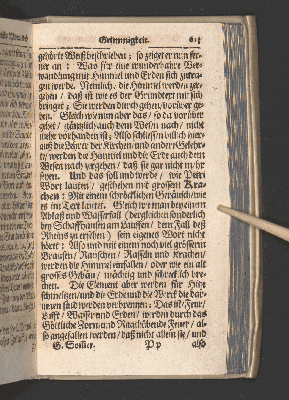 Gehorsamkeit. 615
gehörte Weiß beschrieben; so zeiget er nun fer-
ner an: Was für eine wunderbahre Ver-
wandlung mit Himmel und Erden sich zutra-
gen werde. Nemlich/ die Himmel werden zer-
gehen/ daß ist wie es der Grundtext mit sich
bringet; Sie werden durchgehen/ vorüber ge-
hen. Gleich wie nun aber das/ so da vorüber
gehet/ gäntzlich auch dem Wesen nach/ nicht
mehr vorhanden ist; Also schliessen viel hier-
auß die Lehrer der Kirchen und andere Gelehr-
te/ werden die Himmel und die Erde auch dem
Wesen nach vergehen/ daß sie gar nicht mehr
seyen. Und das soll werde/ wie Petri
Wort lauten/ geschehen mit grossem Kra-
chen: Mit einem schröcklichen Geräusch/ wie
es im Text lautet. Gleich wie man bey einem
Ablaß und Wasserfall (dergleichen sonderlich
bey Schaffhausen am Lauffen/ dem Fall deß
Rheins zu ersehen) sein eigenes Wort nicht
höret: Also und mit einem noch viel grösserm
Brausen/ Rauschen/ Rasseln und Krachen/
werden die Himmel einfallen/ oder wie ein alt
grosses Gebäu/ mächtig und schrecklich bre-
chen. Die Element aber werden für Hitze
schmeltzen/ und die Erde und die Werck die dar-
innen sind werden verbrennen: Das ist/ Feur/
Lufft/ Wasser und Erden/ werden durch das
Göttliche Zorn- und Raachübende Feuer/ al-
so angefallen werden/ daß nicht allein sie/ und
P p also